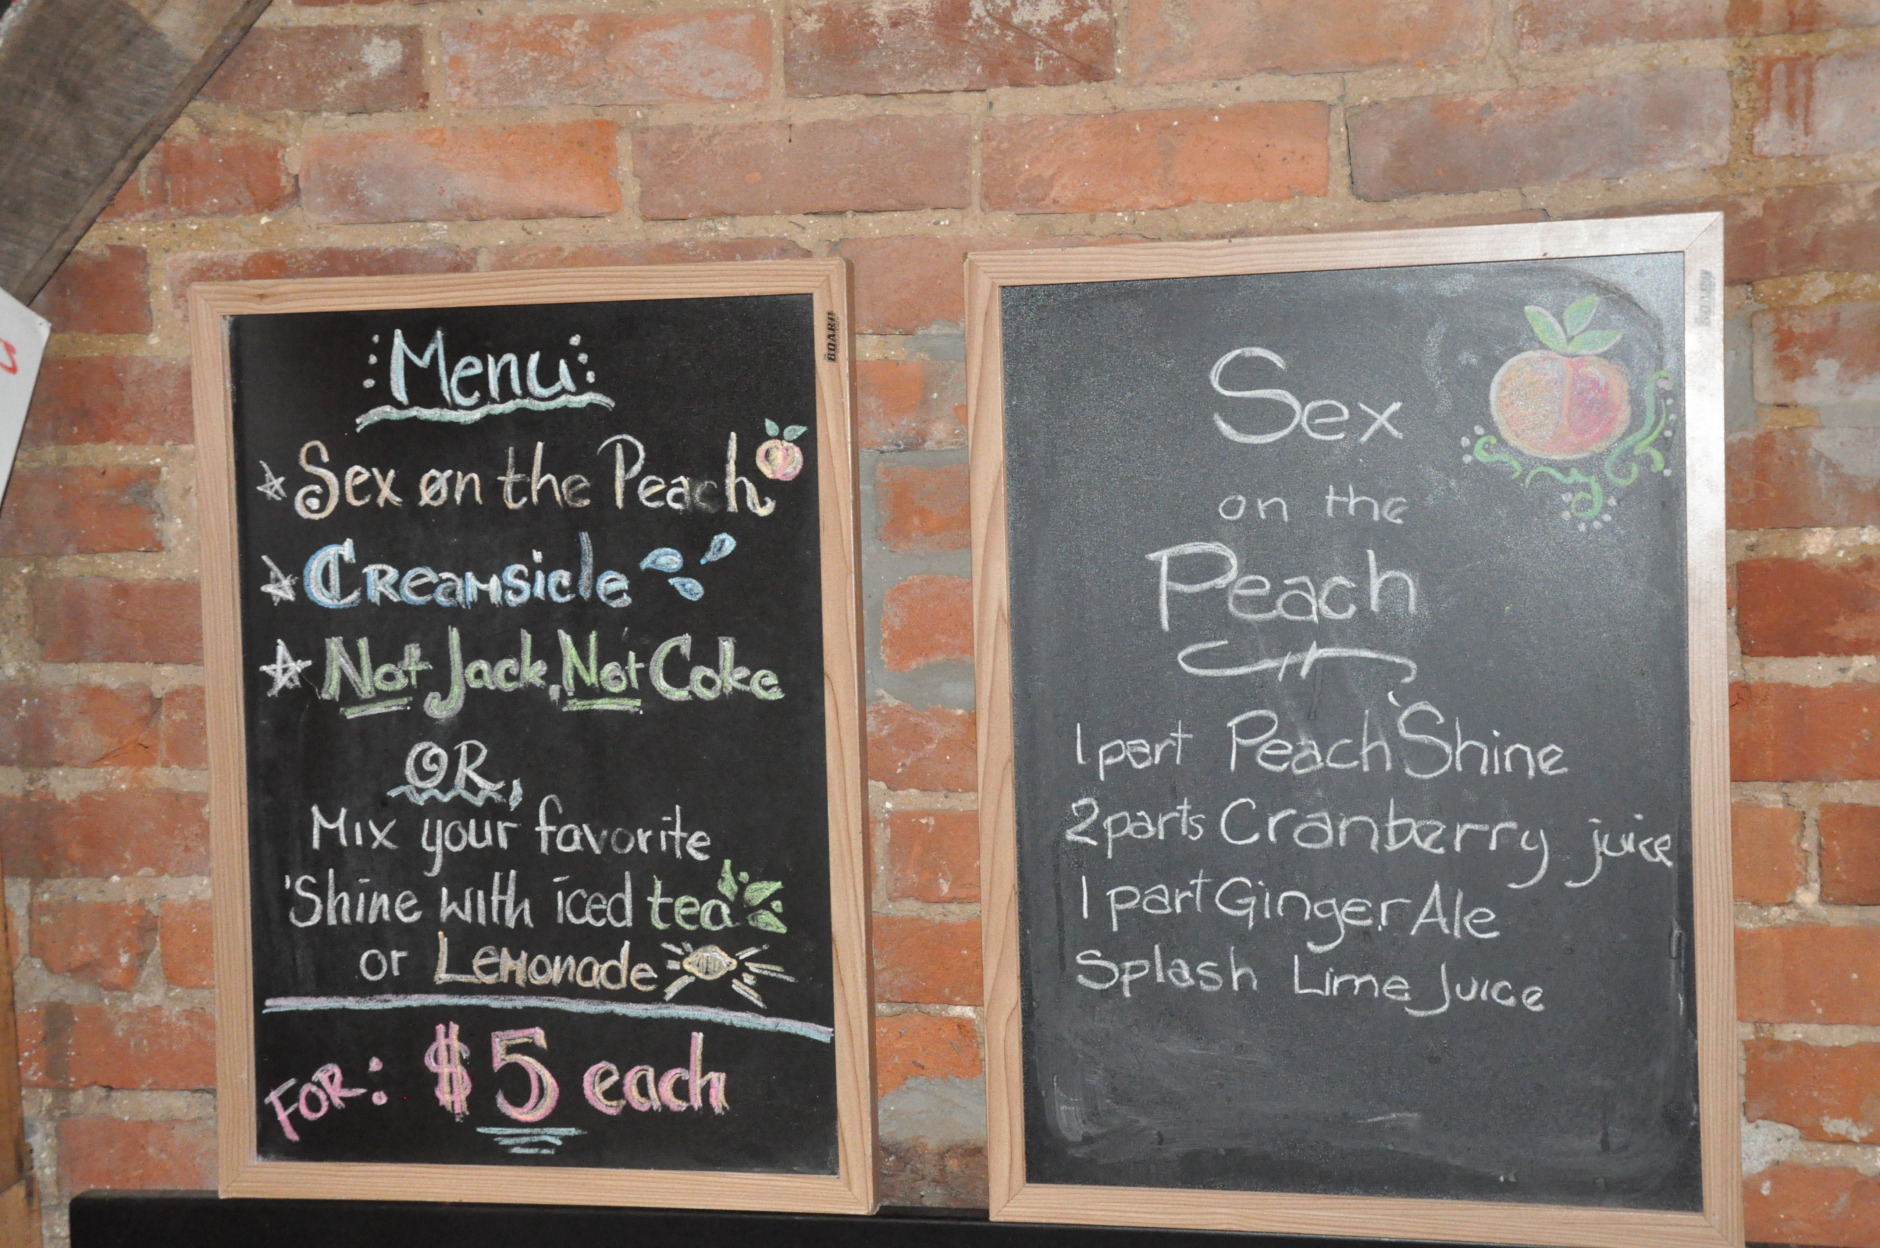 Menu
Sex on the Peach
Creamsicle
Not Jack, Not Coke
OR,
Mix your favorite
'Shine with iced tea
or Lemonade
FOR: $5 each
BOARD
Sex
on the
Peach
1 part Peach 'Shine
2 parts Cranberry juice
1 part Ginger Ale
Splash Lime Juice
BOARD